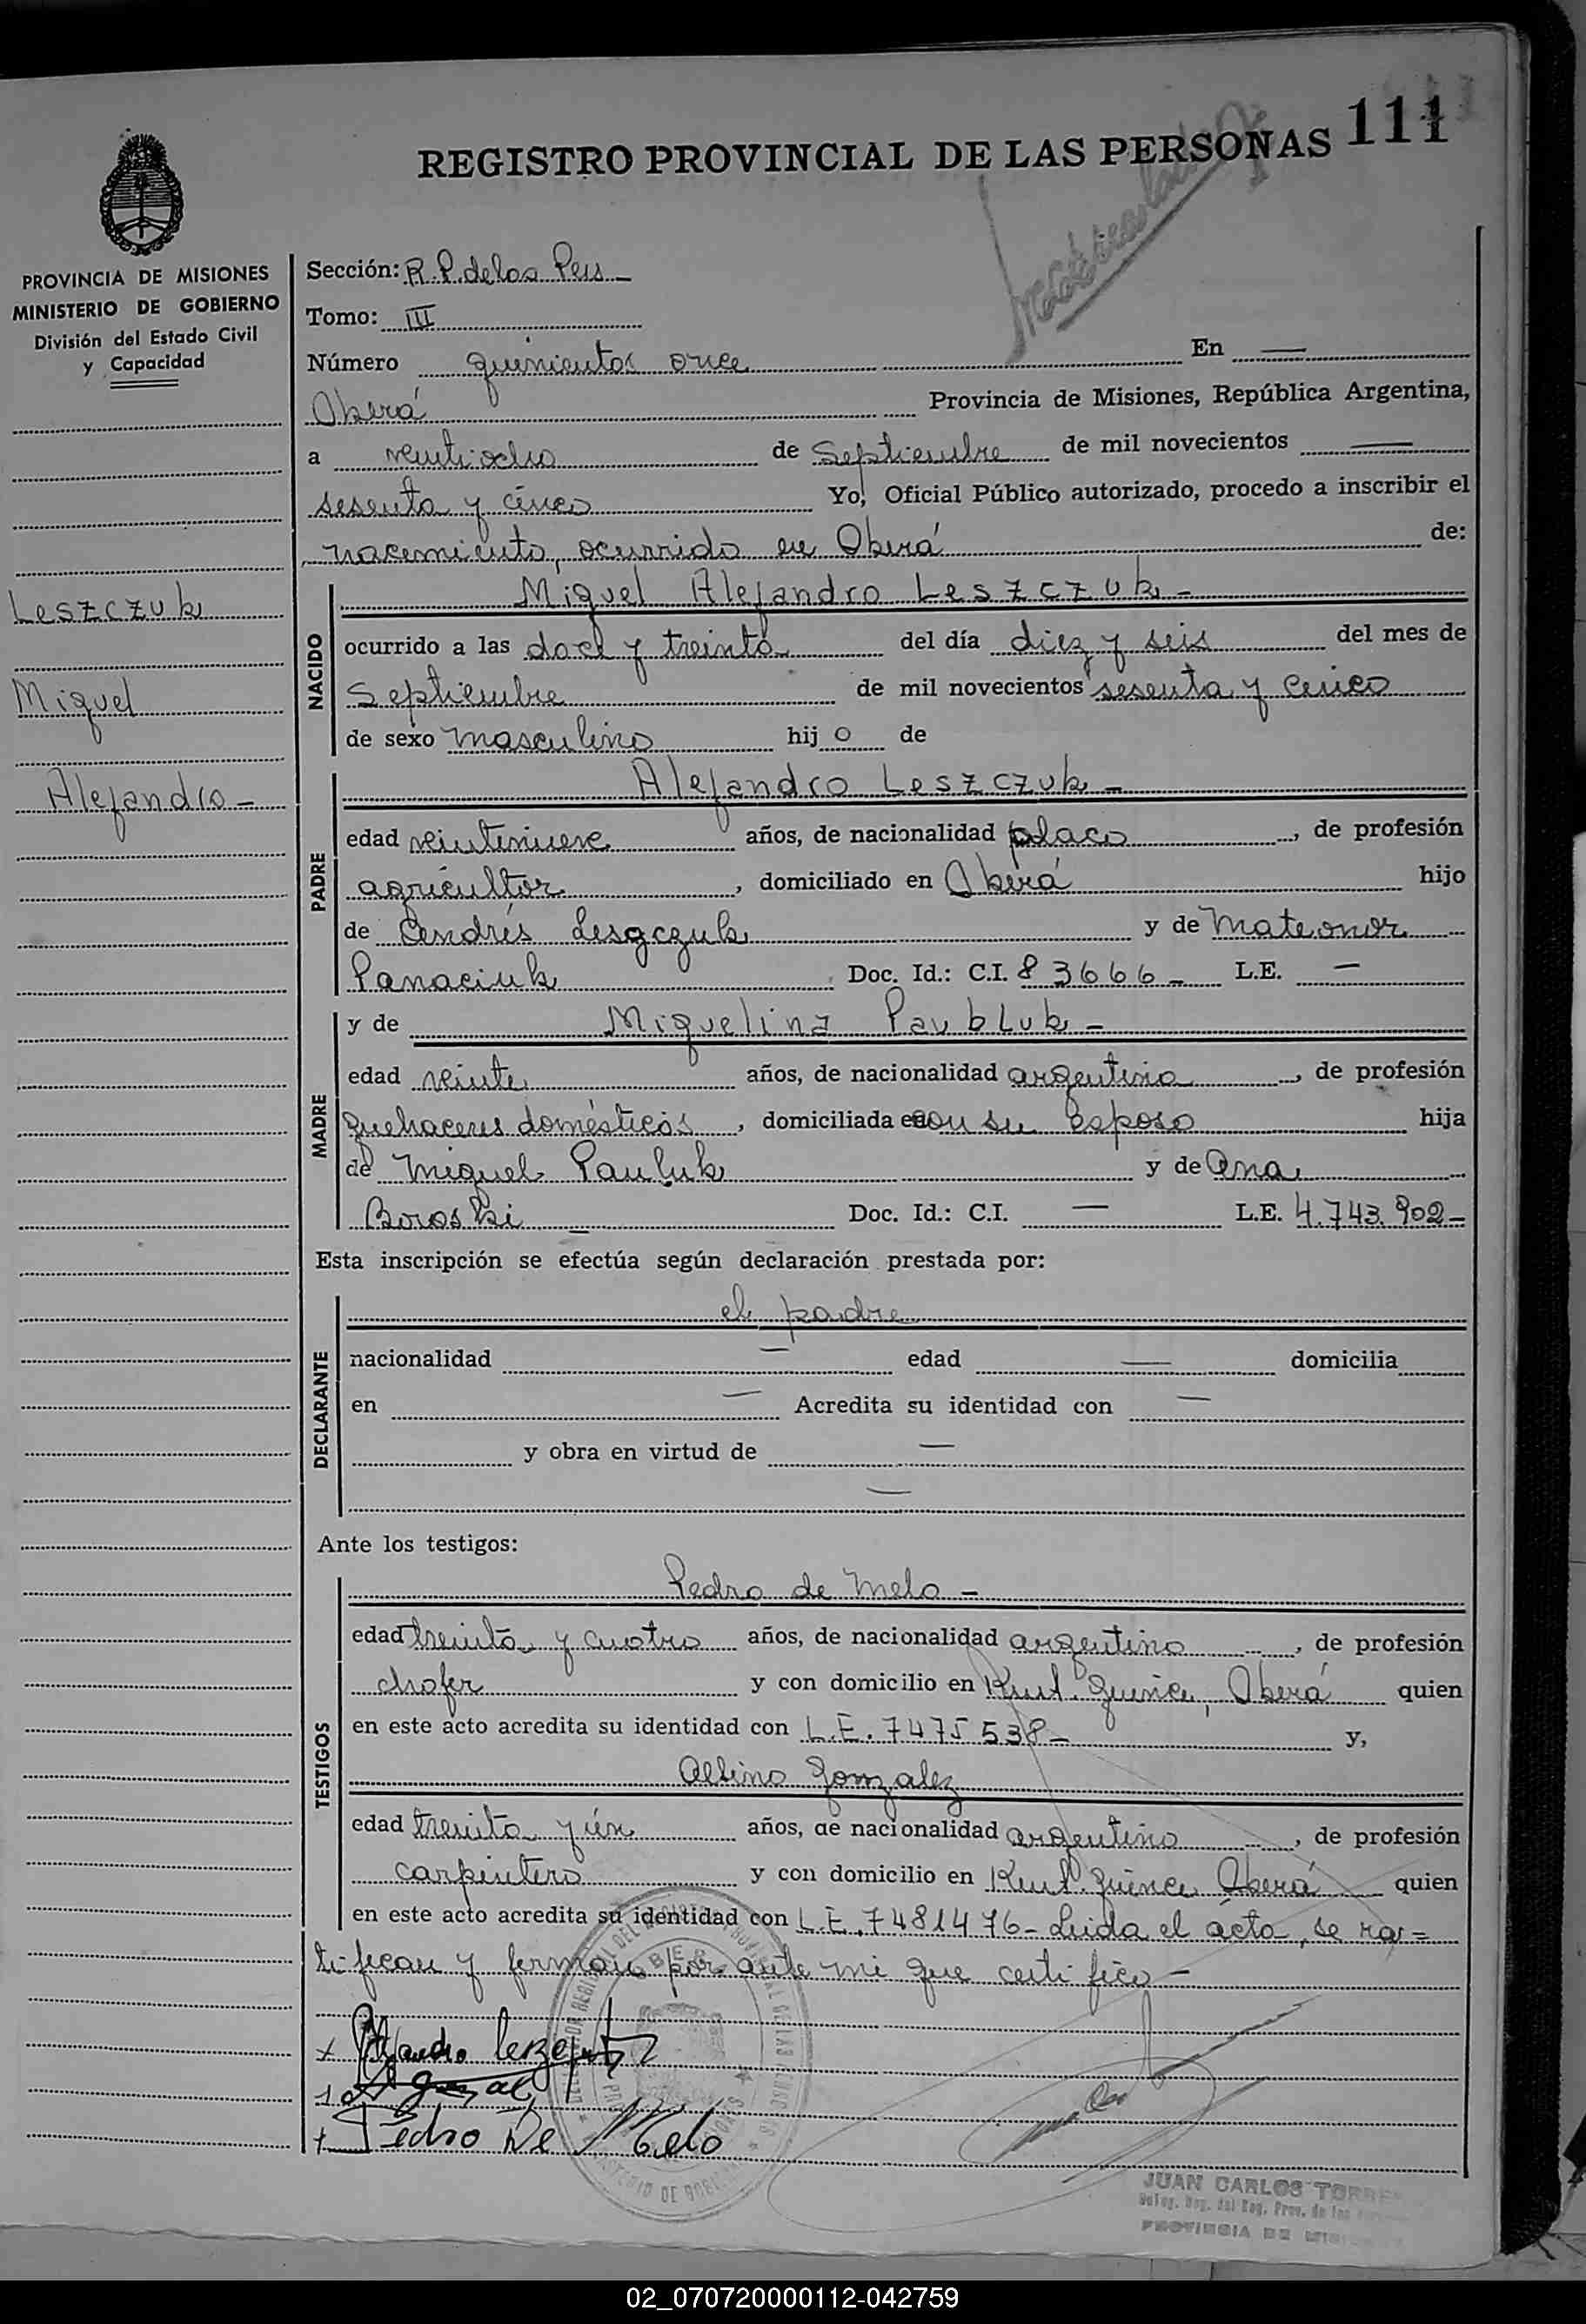 111
REGISTRO PROVINCIAL DE LAS PERSONAS
PROVINCIA DE MISIONES
MINISTERIO DE GOBIERNO
División del Estado Civil
y Capacidad
Leszczuk
Miguel
Alejandro -
Sección: R. P. de las Pers -
Tomo: III
Número quinientos once En —
Oberá Provincia de Misiones, República Argentina,
a veintiocho de Septiembre de mil novecientos —
sesenta y cinco Yo, Oficial Público autorizado, procedo a inscribir el
nacemiento, ocurrido en Oberá de:
NACIDO
Miguel Alejandro Leszczuk -
ocurrido a las doce y treinta del día diez y seis del mes de
Septiembre de mil novecientos sesenta y cinco
de sexo masculino hijo de
PADRE
Alejandro Leszczuk -
edad veintinueve años, de nacionalidad polaco, de profesión
agricultor, domiciliado en Oberá hijo
de Andrés Lesgczuk y de Mateonor
Panaciuk Doc. Id.: C.I. 83666 - L.E. —
MADRE
y de Miguelina Pavbluk -
edad veinte años, de nacionalidad argentina, de profesión
quehaceres domésticos, domiciliada con su esposo hija
de Miguel Pauluk y de Ana
Boroski - Doc. Id.: C.I. — L.E. 4.743.902 -
Esta inscripción se efectúa según declaración prestada por:
DECLARANTE
el padre
nacionalidad — edad — domicilia
en — Acredita su identidad con —
y obra en virtud de —
—
Ante los testigos:
TESTIGOS
Pedro de Melo -
edad treinta y cuatro años, de nacionalidad argentino, de profesión
chofer y con domicilio en Kmt. quince, Oberá quien
en este acto acredita su identidad con L.E. 7475538 - y,
Albino Gonzalez
edad treinta y ún años, de nacionalidad argentino, de profesión
carpintero y con domicilio en Kmt. quince Oberá quien
en este acto acredita su identidad con L.E. 7481476 - Leida el acta, se ra=
tifican y firman por ante mi que certifico -
Pedro De Melo
JUAN CARLOS TORRES
PROVINCIA DE
02_070720000112-042759